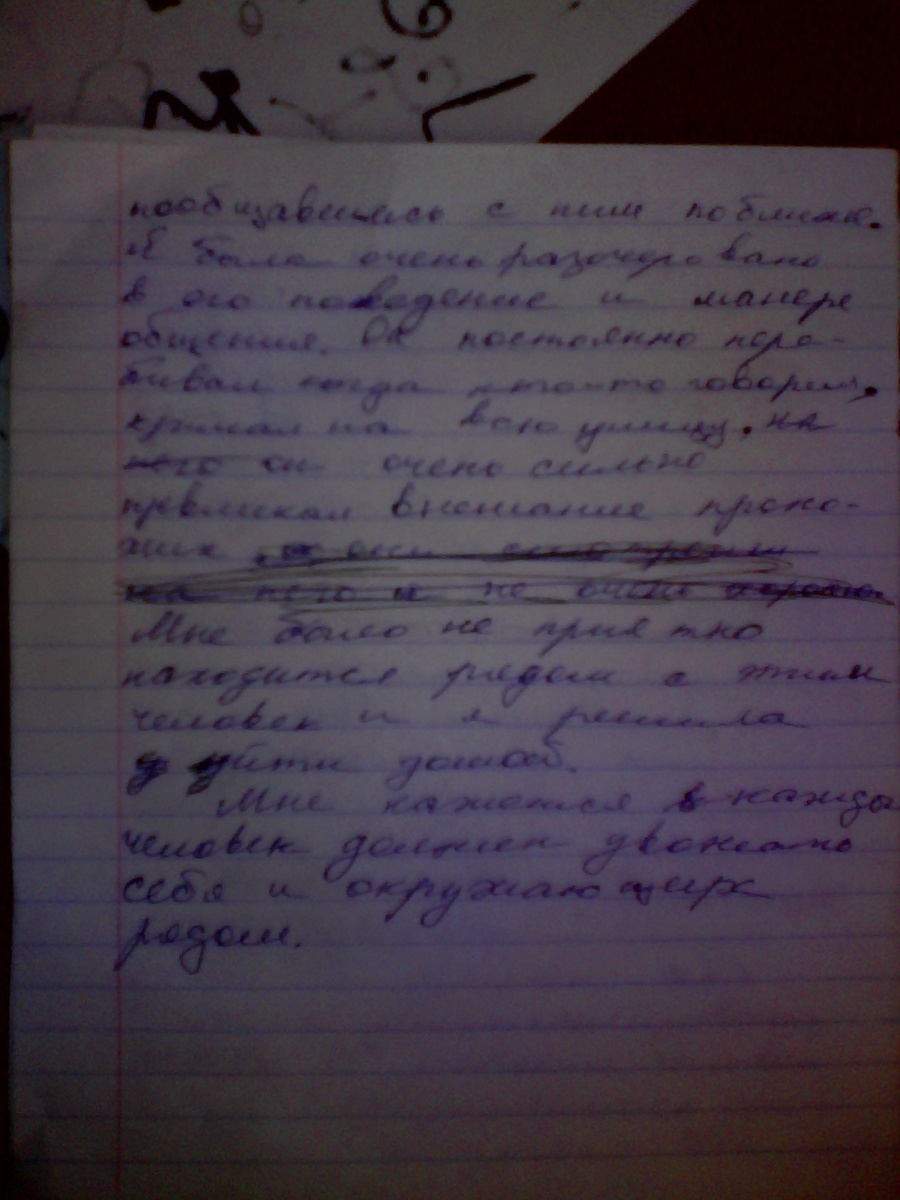 пообщавшись с ним поближе.
Я была очень разочеровано
в его поведение и манере
общения. Он постоянно пере-
бивал когда кто-то говорил,
кричал на всю улицу. на
него он очень сильно
превликал внемание прохо-
жих они смотрели
на него и не очень хорошо
Мне было не приятно
находится рядом с этим
человек и я решила
уйти домой.
Мне кажется в каждо
человек должен увожать
себя и окружающих
рядом.